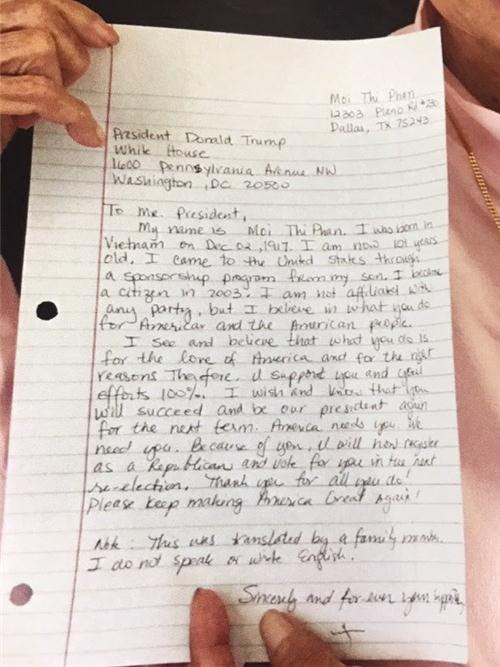 Moi Thi Phan
12303 Plano Rd #230
Dallas, TX 75243
President Donald Trump
White House
1600 Pennsylvania Avenue NW
Washington, DC 20500
To Mr. President,
My name is Moi Thi Phan. I was born in
Vietnam on Dec 02, 1917. I am now 101 years
old. I came to the United States through
a sponsorship program from my son. I became
a citizen in 2003. I am not affiliated with
any party, but I believe in what you do
for America and the American people.
I see and believe that what you do is
for the love of America and for the right
reasons Therefore, I support you and your
efforts 100%. I wish and know that you
will succeed and be our president again
for the next term. America needs you. We
need you. Because of you, I will now register
as a Republican and vote for you in the next
re-election. Thank you for all you do!
Please keep making America Great Again!
Note: This was translated by a family member.
I do not speak or write English.
Sincerely and for ever your